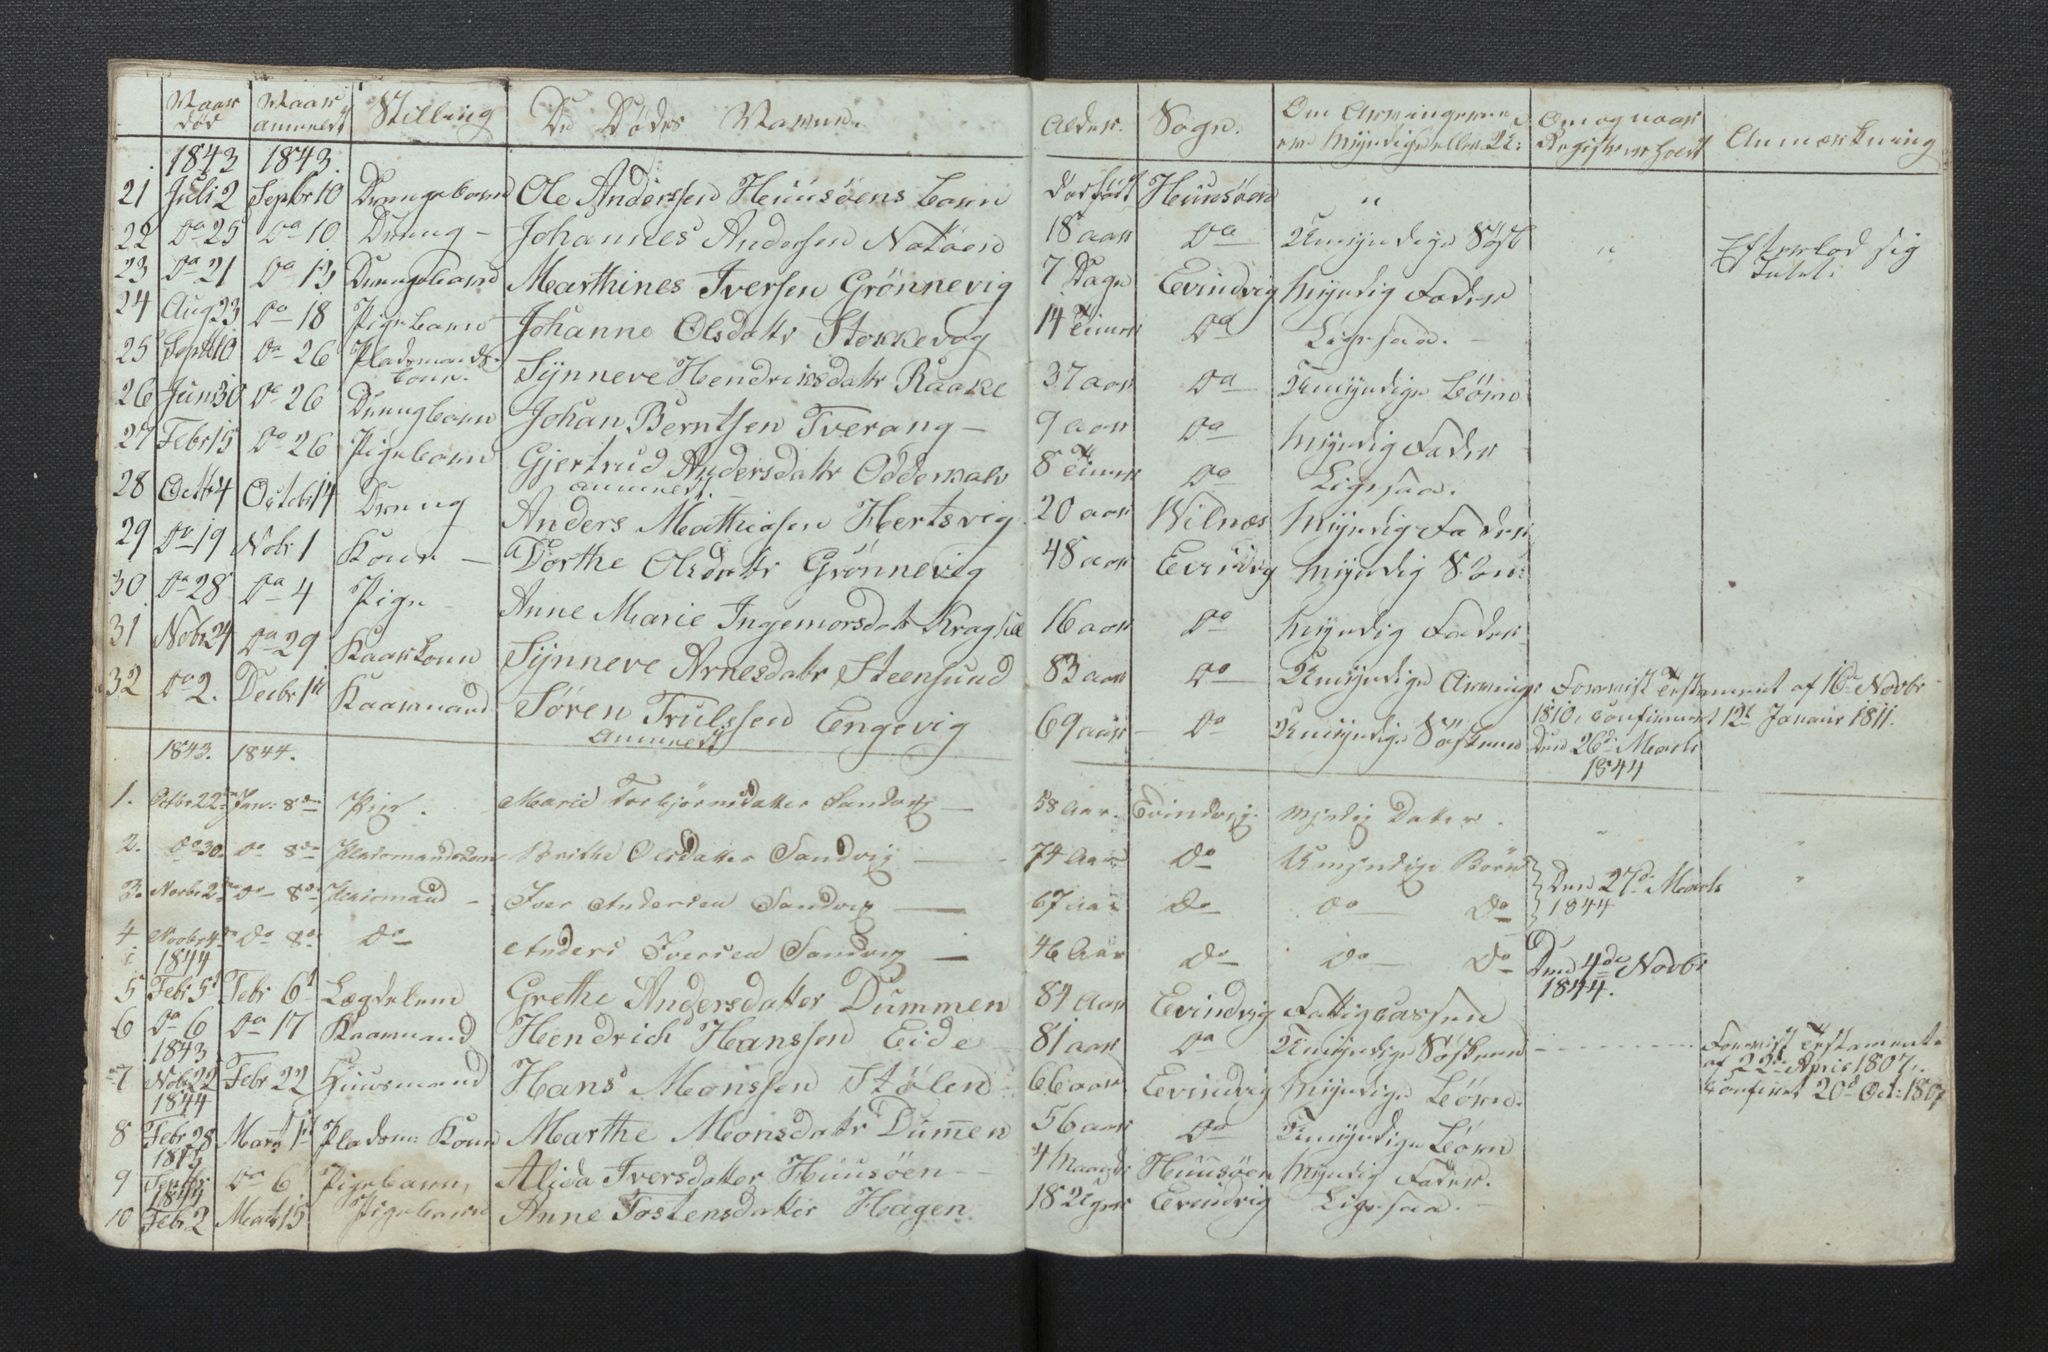 Naar død | Naar anmeldt | Stilling | De Dødes Navne. | Alder. | Sogn. | Om Arvingerne ere Myndige eller | Om og naar Registrering holdt | Anmærkning
1843 | 1843.
21 | Juli 2 | Septbr 10 | Drengebarn | Ole Anderssen Huusøens barn | dødfødt | Huusøen | "
22 | Do 25 | Do 10 | Dreng - | Johannes Andersen Notøen | 18 aar | Do | Umyndige Søsk | " | Efterlod sig Intet.
23 | Do 21 | Do 13 | Drengebarn | Marthines Iversen Grønnevig | 7 Dage | Evindvig | Myndig Fader
24 | Aug 23 | Do 18 | Pigebarn | Johanne Olsdatr Stokkevog | 14 Timer | Do | Ligesaa.
25 | Septbr 10 | Do 26 | Pladsmands kone. | Synneve Hendriksdatr Raake | 37 aar | Do | Umyndige Børn
26 | Juni 30 | Do 26 | Drengbarn | Johan Berntsen Tverang - | 9 aar | Do | Myndig Fader
27 | Febr 15 | Do 26 | Pigebarn | Gjertrud Andersdatr Odderkalv | 8 Timer | Do | Ligesaa.
28 | Octbr 4 | Octobr 14 | Dreng | anmeldt. Anders Mathiasen Hertsvig | 20 aar | Wilnæs | Myndig Fader
29 | Do 19 | Nobr 1 | Kone - | Dorthe Olsdatr Grønnevig | 48 aar | Evindvig | Myndig Søn:
30 | Do 28 | Do 4 | Pige | Anne Marie Ingemorsdatr Kraghæl | 16 aar | Do | Myndig Fader
31 | Nobr 24 | Do 29 | Kaarkone | Synneve Arnesdatr Steensund | 83 aar | Do | Umyndige Arvinge | Forevist Testament af 16de Novbr 1810, Confirmert 12t Januar 1811.
32 | Do 2. | Decbr 1ste | Kaarmand | Søren Trulssen Engevig anmeldt | 69 aar | Do | Umyndige Søskend | Den 26d. Marts 1844
1843. | 1844.
1. | Octbr 22de | Jan: 8de | Pige. | Marie Torbjørnsdatter Sandvig | 58 Aar. | Evindvig. | Myndig Datter. | "
2. | Do 30. | Do 8de | Pladsmandskone | Brithe Olsdatter Sandvig | 74 Aar | Do | Umyndige Børn | Den 27d. Marts 1844 | "
3. | Novbr 2de | Do 8de | Pladsmand - | Iver Andersen Sandvig | 67 Aar | Do | Do Do | "
4 | Novbr 4de | Do 8de | Do | Anders Iversen Sandvig | 46 Aar | Do | Do Do | Den 4de Novbr 1844.
1844
5 | Febr 5t | Febr 6t | Lægdelem | Grethe Andersdatter Dummen | 84 Aar | Evindvig | Fattigcassen
6 | Do 6 | Do 17 | Kaarmand | Hendrich Hanssen Eide | 81 aar | Do | Umyndige Søskend | Forevist Testamente af 22d. April 1807. Confirmt 20d. Oct: 1807
1843
7 | Nobr 22 | Febr 22 | Huusmand | Hans Monssen Stølen | 66 aar | Evindvig | Myndige Børn.
1844
8 | Febr 28 | Marts 1ste | Pladsm: Kone | Marthe Monsdatr Dumen | 56 aar | Do | Umyndige Børn
1843
9 | Septbr | Do 6 | Pigebarn, | Alida Iversdatter Huusøen - | 4 Maaneder | Huusøen | Myndig Fader.
1844
10 | Febr 2 | Marts 15 | Pigebarn | Anne Tostensdatter Hagen | 18 Uger | Evindvig | Ligesaa.